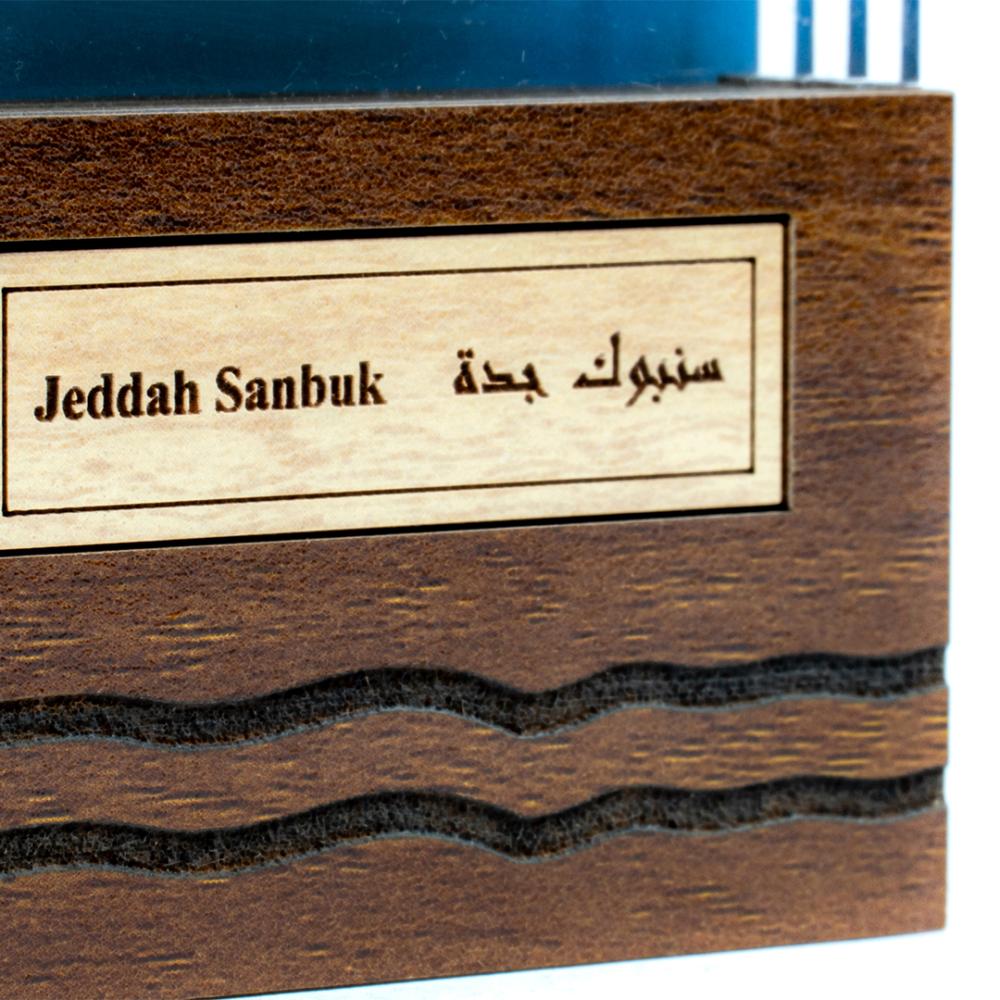 Jeddah Sanbuk سنبوك جدة